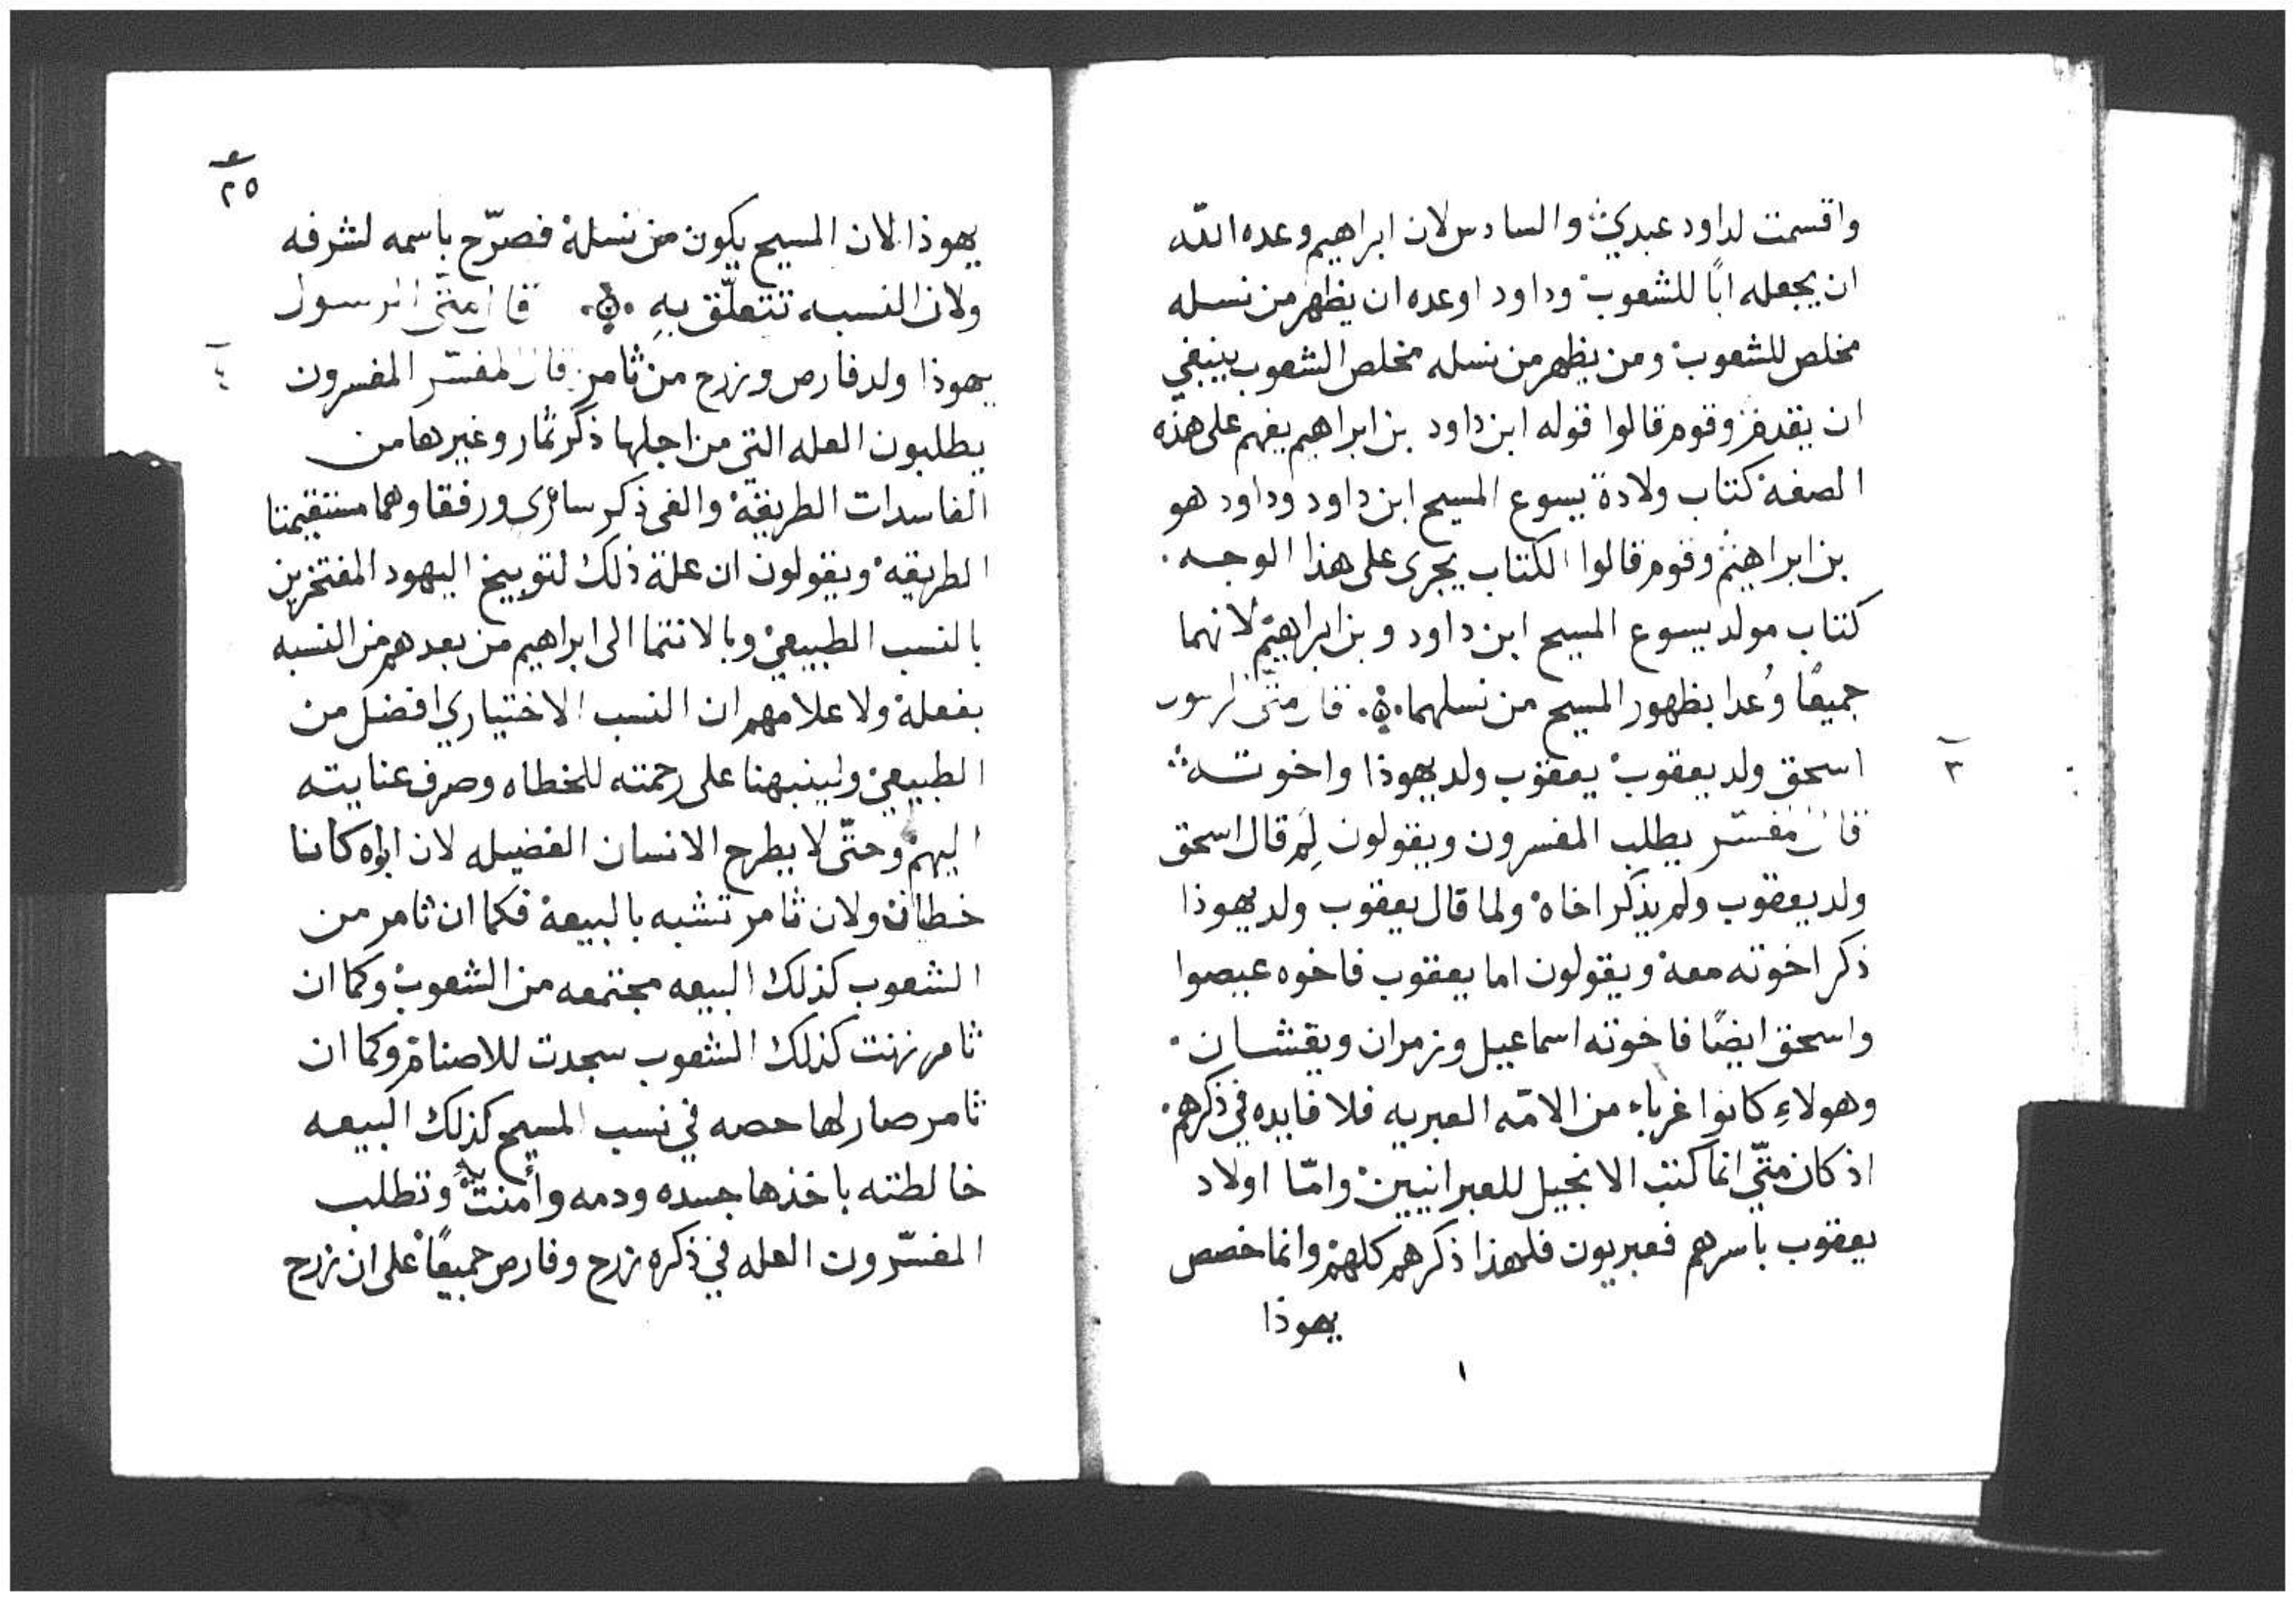 واقسمت لداود عبدي والسادس لان ابراهيم وعده الله
ان يجعله ابًا للشعوب وداود اوعده ان يظهر من نسله
مخلص للشعوب ومن يظهر من نسله مخلص الشعوب ينبغي
ان يقدم وقوم قالوا قوله ابن داود بن ابراهيم يفهم على هذه
الصفه كتاب ولادة يسوع المسيح ابن داود وداود هو
بن ابراهيم وقوم قالوا الكتاب يجرى على هذا الوجه
كتاب مولد يسوع المسيح ابن داود وبن ابراهيم لانهما
جميعًا وُعدا بظهور المسيح من نسلهما قال متى الرسول
٣
اسحق ولد يعقوب يعقوب ولد يهوذا واخوته
قال المفسّر يطلب المفسرون ويقولون لِمَ قال اسحق
ولد يعقوب ولم يذكر اخاه ولما قال يعقوب ولد يهوذا
ذكر اخوته معه ويقولون اما يعقوب فاخوه عيصوا
واسحق ايضًا فاخوته اسماعيل وزمران ويقشان
وهولاءِ كانوا غرباء من الامّه العبريه فلا فايده في ذكرهم
اذ كان متّي انما كتب الانجيل للعبرانيين وامّا اولاد
يعقوب باسرهم فعبريون فلهذا ذكرهم كلهم وانما خصص
يهوذا
١
٢٥
يهوذا لان المسيح يكون من نسله فصرّح باسمه لشرفه
ولان النسبه تتعلّق بهِ قال متّى الرسول
٤
يهوذا ولد فارص وزرح من ثامر قال المفسّر المفسرون
يطلبون العله التي من اجلها ذكر ثمار وغيرها من
الفاسدات الطريقه والغى ذكر سارى ورفقا وهما مستقيمتا
الطريقه ويقولون ان علة ذلك لتوبيخ اليهود المفتخرين
بالنسب الطبيعي وبالانتما الى ابراهيم من بعدهم من النسبه
بفعله ولاعلامهم ان النسب الاختياري افضل من
الطبيعي ولينبهنا على رحمته للخطاه وصرف عنايته
اليهم وحتّى لا يطرح الانسان الفضيله لان ابواه كانا
خطاة ولان ثامر تشبه بالبيعة فكما ان ثامر من
الشعوب كذلك البيعه مجتمعه من الشعوب وكما ان
ثامر زنت كذلك الشعوب سجدت للاصنام وكما ان
ثامر صار لها حصه في نسب المسيح كذلك البيعه
خالطته باخذها جسده ودمه وأمنت به وتطلب
المفسّرون العله في ذكره زرح وفارص جميعًا على ان زرح